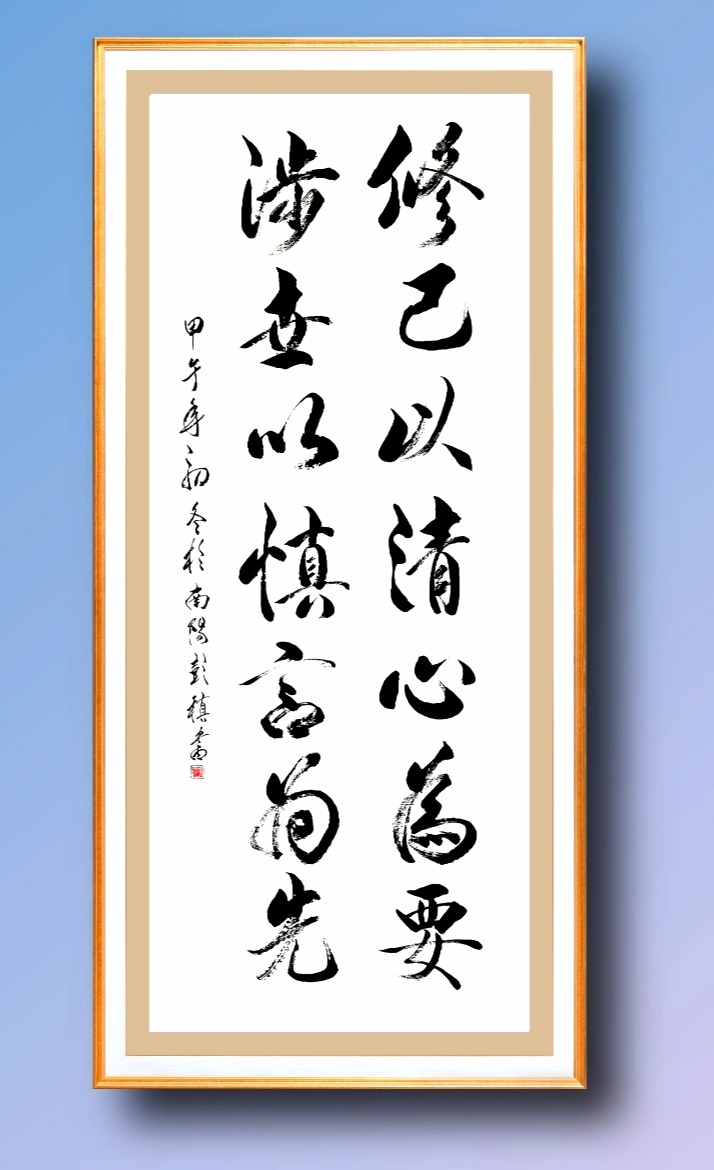 修己以清心為要
涉世以慎言為先
甲午年初冬於南陽彭稹書